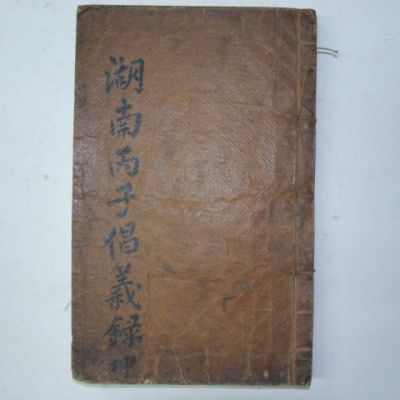 湖南丙子倡義錄坤